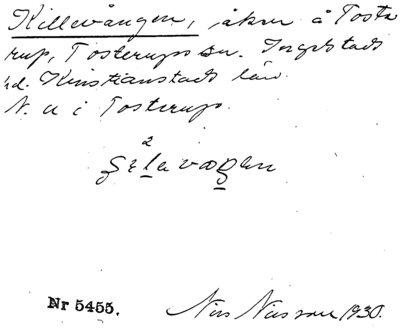 Killevången, åker å Tosta
rup, Tosterups sn. Ingelstads
hd. Kristianstads län
N. u i Tosterup.
2
Nr 5455. Nils Nilsson 1930.